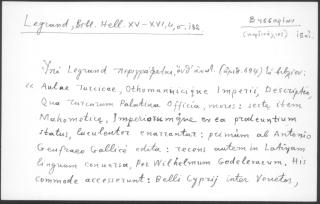 Legrand, Bibl. Hell. XV–XVI, 4, σ. 132
Βησσαρίων
(καρδινάλιος) ἰδιό.
Ὑπὸ Legrand περιγράφεται, (ἀριθ. 694) τὸ βιβλίον:
« Aulae Turcicae, Othomannicique Imperii, Descriptio,
Qua Turcarum Palatina Officia, mores: sectae item
Mahometicae, Imperiorumque ex ea prodeuntium
status, luculenter enarrantur: primùm ab Antonio
Geufraeo Gallicè edita: recens autem in Latinam
linguam conversa, Per Wilhelmum Godelevaeum. His
commode accesserunt: Belli Cyprij inter Venetos,